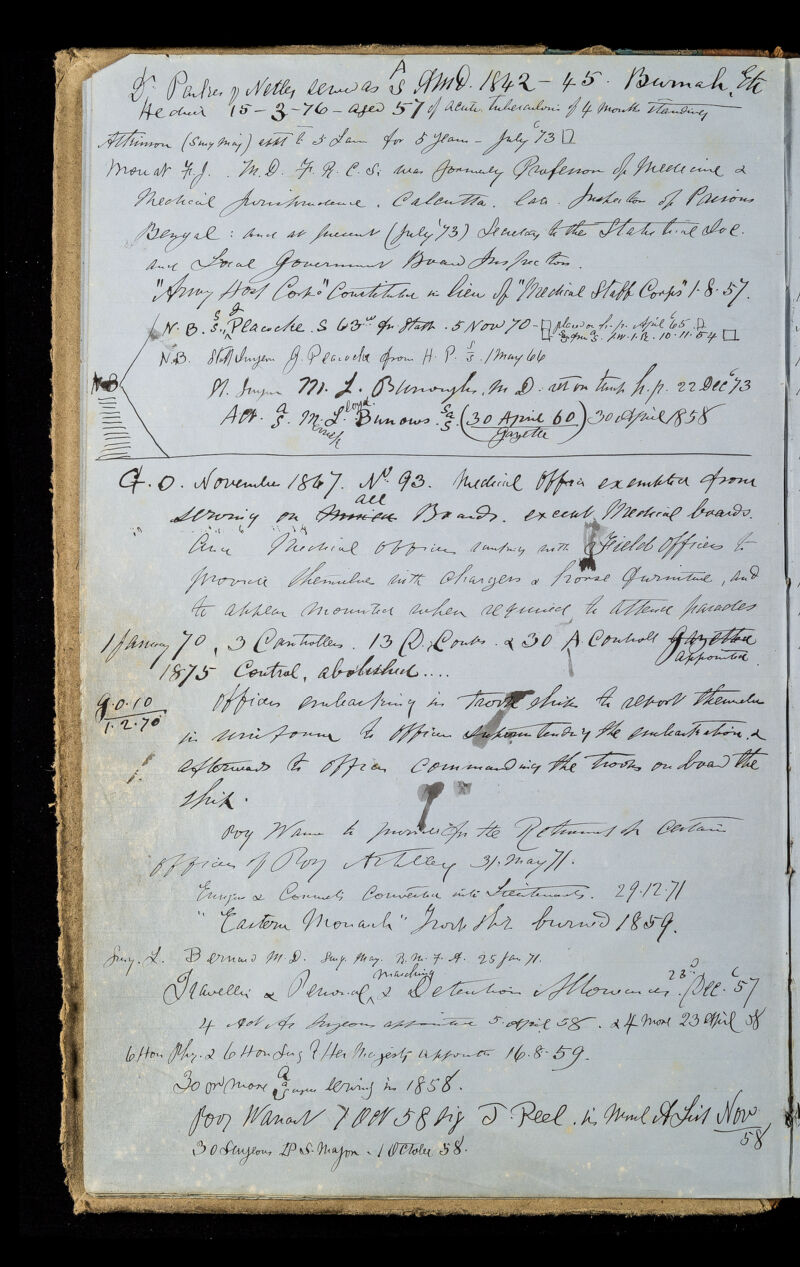 Dr. Parkes of Netley served as A S AMD. 1842 – 45. Burmah, Etc
He died 15 – 3 – 76 – aged 57 of acute tuberculosis of 4 months standing
Atkinson (Surg Maj) asst to for 5 years – July '73
Mouat F.J. M.D. F.R.C.S. was formerly Professor of Medicine &
Medical Jurisprudence. Calcutta. late Inspector of Prisons
Bengal: and at present (July '73) Secretary to the Statistical Soc.
and Local Government Board Inspector.
"Army Hosp Corps" Constituted in lieu of "Medical Staff Corps" 1. 8. 57.
N.B. S. S. G Peacocke. S 63rd fr Staff. 5 Nov 70 – placed on h.p. April '65
10. 11. 54
N.B. Staff Surgeon G. Peacocke from H.P. S. S. 1 May 66
N.B.
St. Surgeon M. L. Burroughs, M.D. ret on temp h.p. 22 Dec '73
Act. a S. M. Lloyd Burrows. Sa S (30 April 60) 30 April 1858
Gazette
G. O. November 1867. No. 93. Medical Officers exempted from
serving on all Boards. except Medical boards.
And Medical officers ranking with Field Officers to
provide themselves with chargers & horse furniture, and
to appear mounted when required to attend parades
1 January 70, 3 Controllers. 13 D. Conts. & 30 A Controll Gazetted
appointed.
1875 Control, abolished....
G.O. 10
1. 2. 70
Officers embarking in troop ships to report themselves
in uniform to officer superintending the embarkation, &
afterwards to officer commanding the troops on board the
ship.
Roy Warr to provide for the Retirement of certain
officers of Roy Artillery 31. May 71.
Ensigns & Cornets Converted into Lieutenants. 29.12.71
"Eastern Monarch" Troop Ship burned 1859.
Surg. L. Bernard M.D. Surg. Maj. 25 Jan 71.
Travelling & Personal, marching & Detention Allowances. 23d Dec. '57
4 Act As Surgeons appointed 5 April 58. & 4 more 23 April 58
6 Hon Phy. & 6 Hon Surg to Her Majesty appointed 16. 8. 59.
30 or more a a serving in 1858.
Roy Warrant 7 Oct 58 sig J. Peel. in List Nov
58
30 Surgeons to S. Major. 1 October 58.